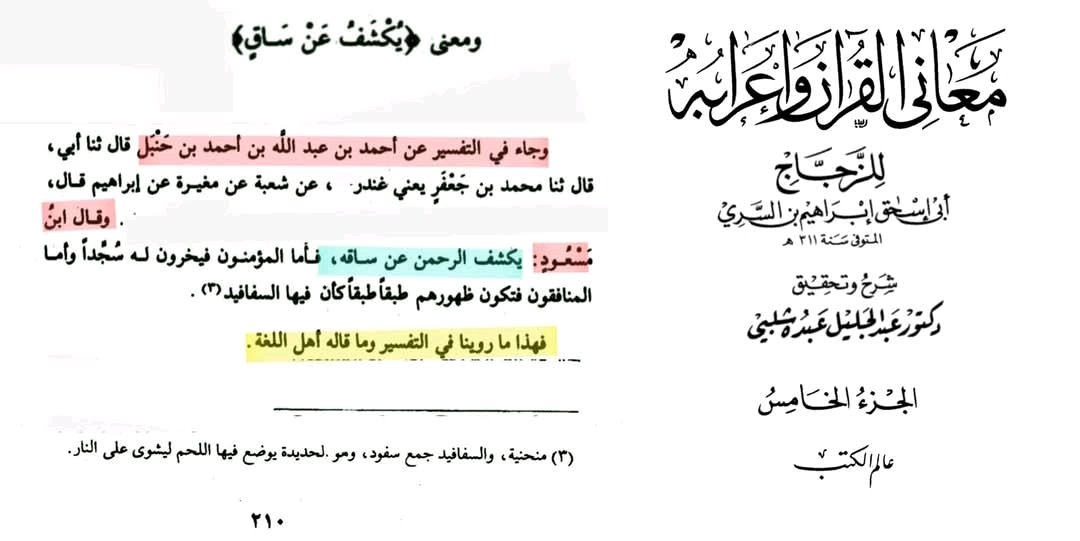 معاني القرآن وإعرابه
للزجاج
أبي إسحاق إبراهيم بن السري
المتوفى سنة ٣١١ هـ
شرح وتحقيق
دكتور عبد الجليل عبده شلبي
الجزء الخامس
عالم الكتب
ومعنى ﴿يُكْشَفُ عَنْ سَاقٍ﴾
وجاء في التفسير عن أحمد بن عبد اللَّه بن أحمد بن حَنْبَل قال ثنا أبي،
قال ثنا محمد بن جَعْفَرٍ يعني غندر ، عن شعبة عن مغيرة عن إبراهيم قال،
. وقال ابنُ
مَسْعُودٍ: يكشف الرحمن عن ساقه، فأما المؤمنون فيخرون له سُجَّداً وأما
المنافقون فتكون ظهورهم طبقاً طبقاً كأن فيها السفافيد(٣).
فهذا ما روينا في التفسير وما قاله أهل اللغة.
(٣) منحنية، والسفافيد جمع سفود، وهو لحديدة يوضع فيها اللحم ليشوى على النار.
٢١٠